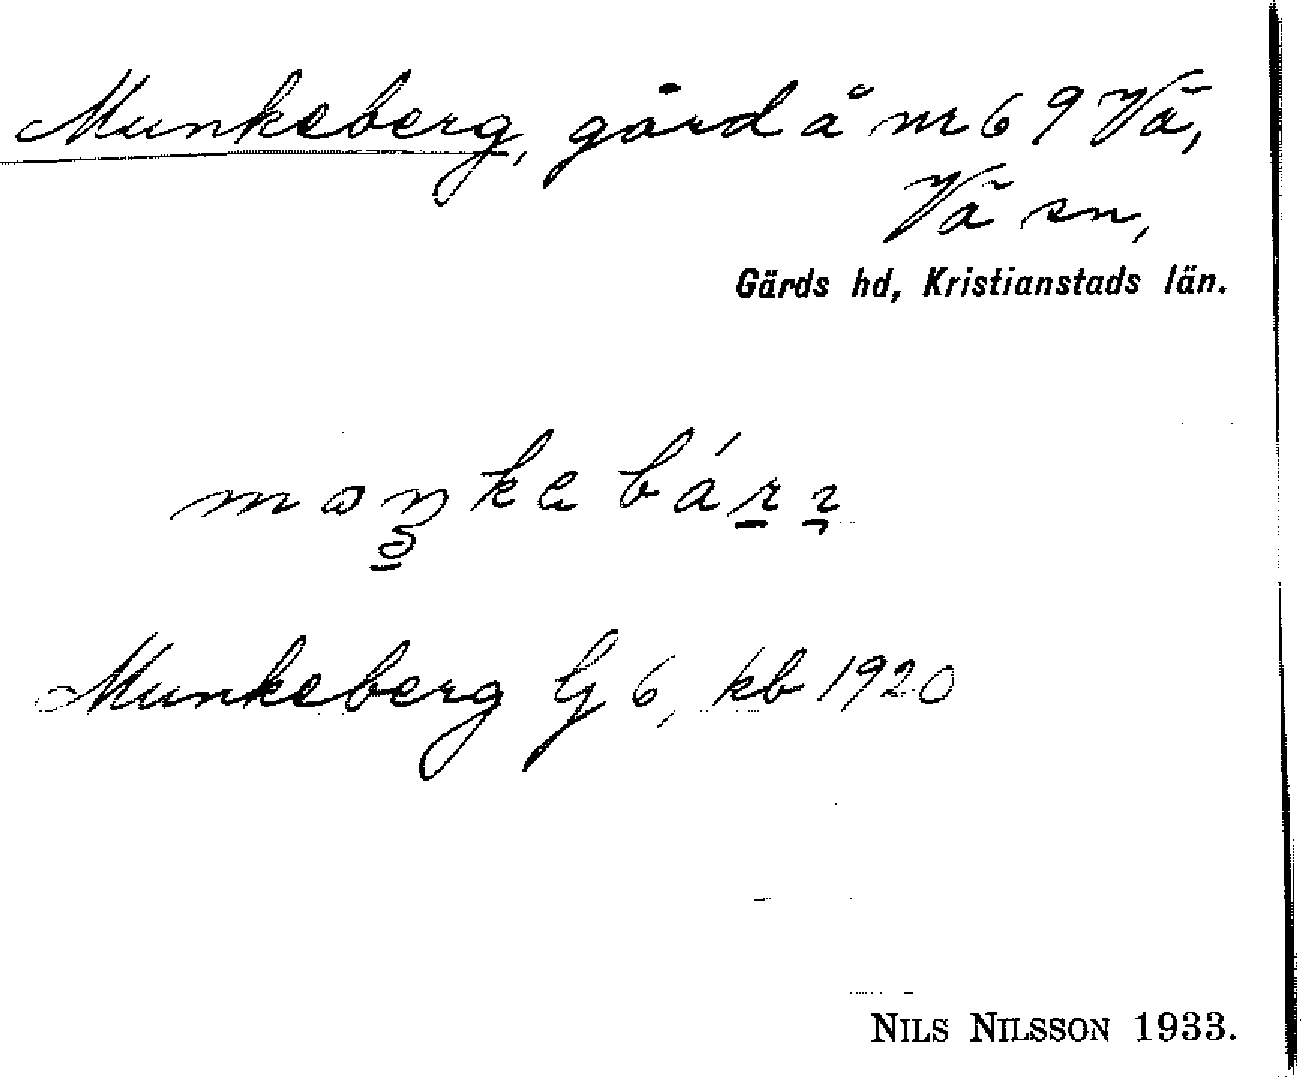 Munkeberg, gård å nr 69 Vä,
Vä sn,
Gärds hd, Kristianstads län.
Munkeberg G 6, kb 1920
NILS NILSSON 1933.